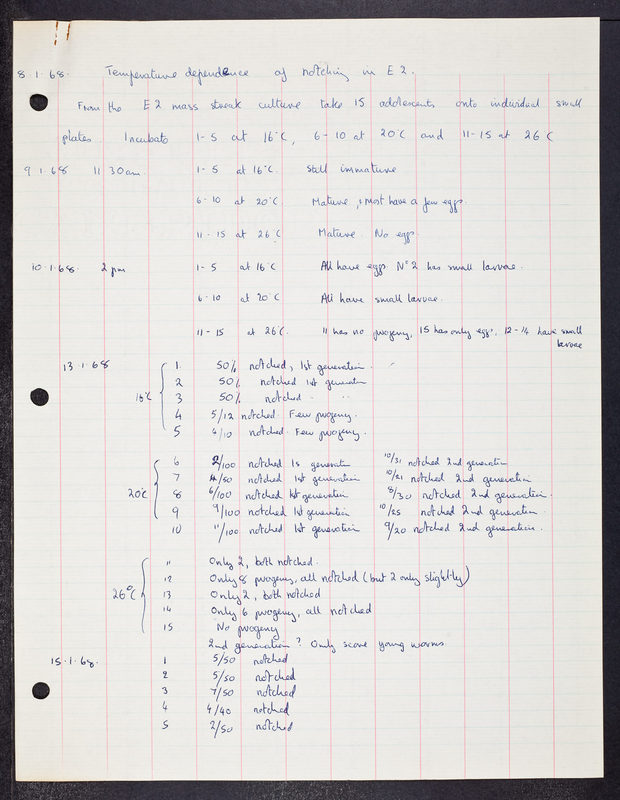 8.1.68. Temperature dependence of notching in E2.
From the E2 mass streak culture take 15 adolescents onto individual small
plates. Incubate 1-5 at 16°C, 6-10 at 20°C and 11-15 at 26°C
9.1.68 11 30am. 1-5 at 16°C. Still immature
6-10 at 20°C. Mature, & most have a few eggs.
11-15 at 26°C. Mature. No eggs.
10.1.68. 2pm 1-5 at 16°C All have eggs. N°2 has small larvae.
6-10 at 20°C All have small larvae.
11-15 at 26°C. 11 has no progeny, 15 has only eggs, 12-14 have small
larvae
13.1.68
16°C
1. 50% notched, 1st generation.
2 50% notched 1st generation
3 50% notched " "
4 5/12 notched. Few progeny.
5 4/10 notched. Few progeny.
20°C
6 2/100 notched 1s generation 10/31 notched 2nd generation
7 4/50 notched 1st generation 10/21 notched 2nd generation
8 6/100 notched 1st generation 8/30 notched 2nd generation.
9 9/100 notched 1st generation 10/25 notched 2nd generation
10 11/100 notched 1st generation 9/20 notched 2nd generation.
26°C
11 Only 2, both notched.
12 Only 8 progeny, all notched (but 2 only slightly)
13 Only 2, both notched
14 Only 6 progeny, all notched
15 No progeny
2nd generation? Only score young worms
15.1.68. 1 5/50 notched
2 5/50 notched
3 7/50 notched
4 4/40 notched
5 2/50 notched